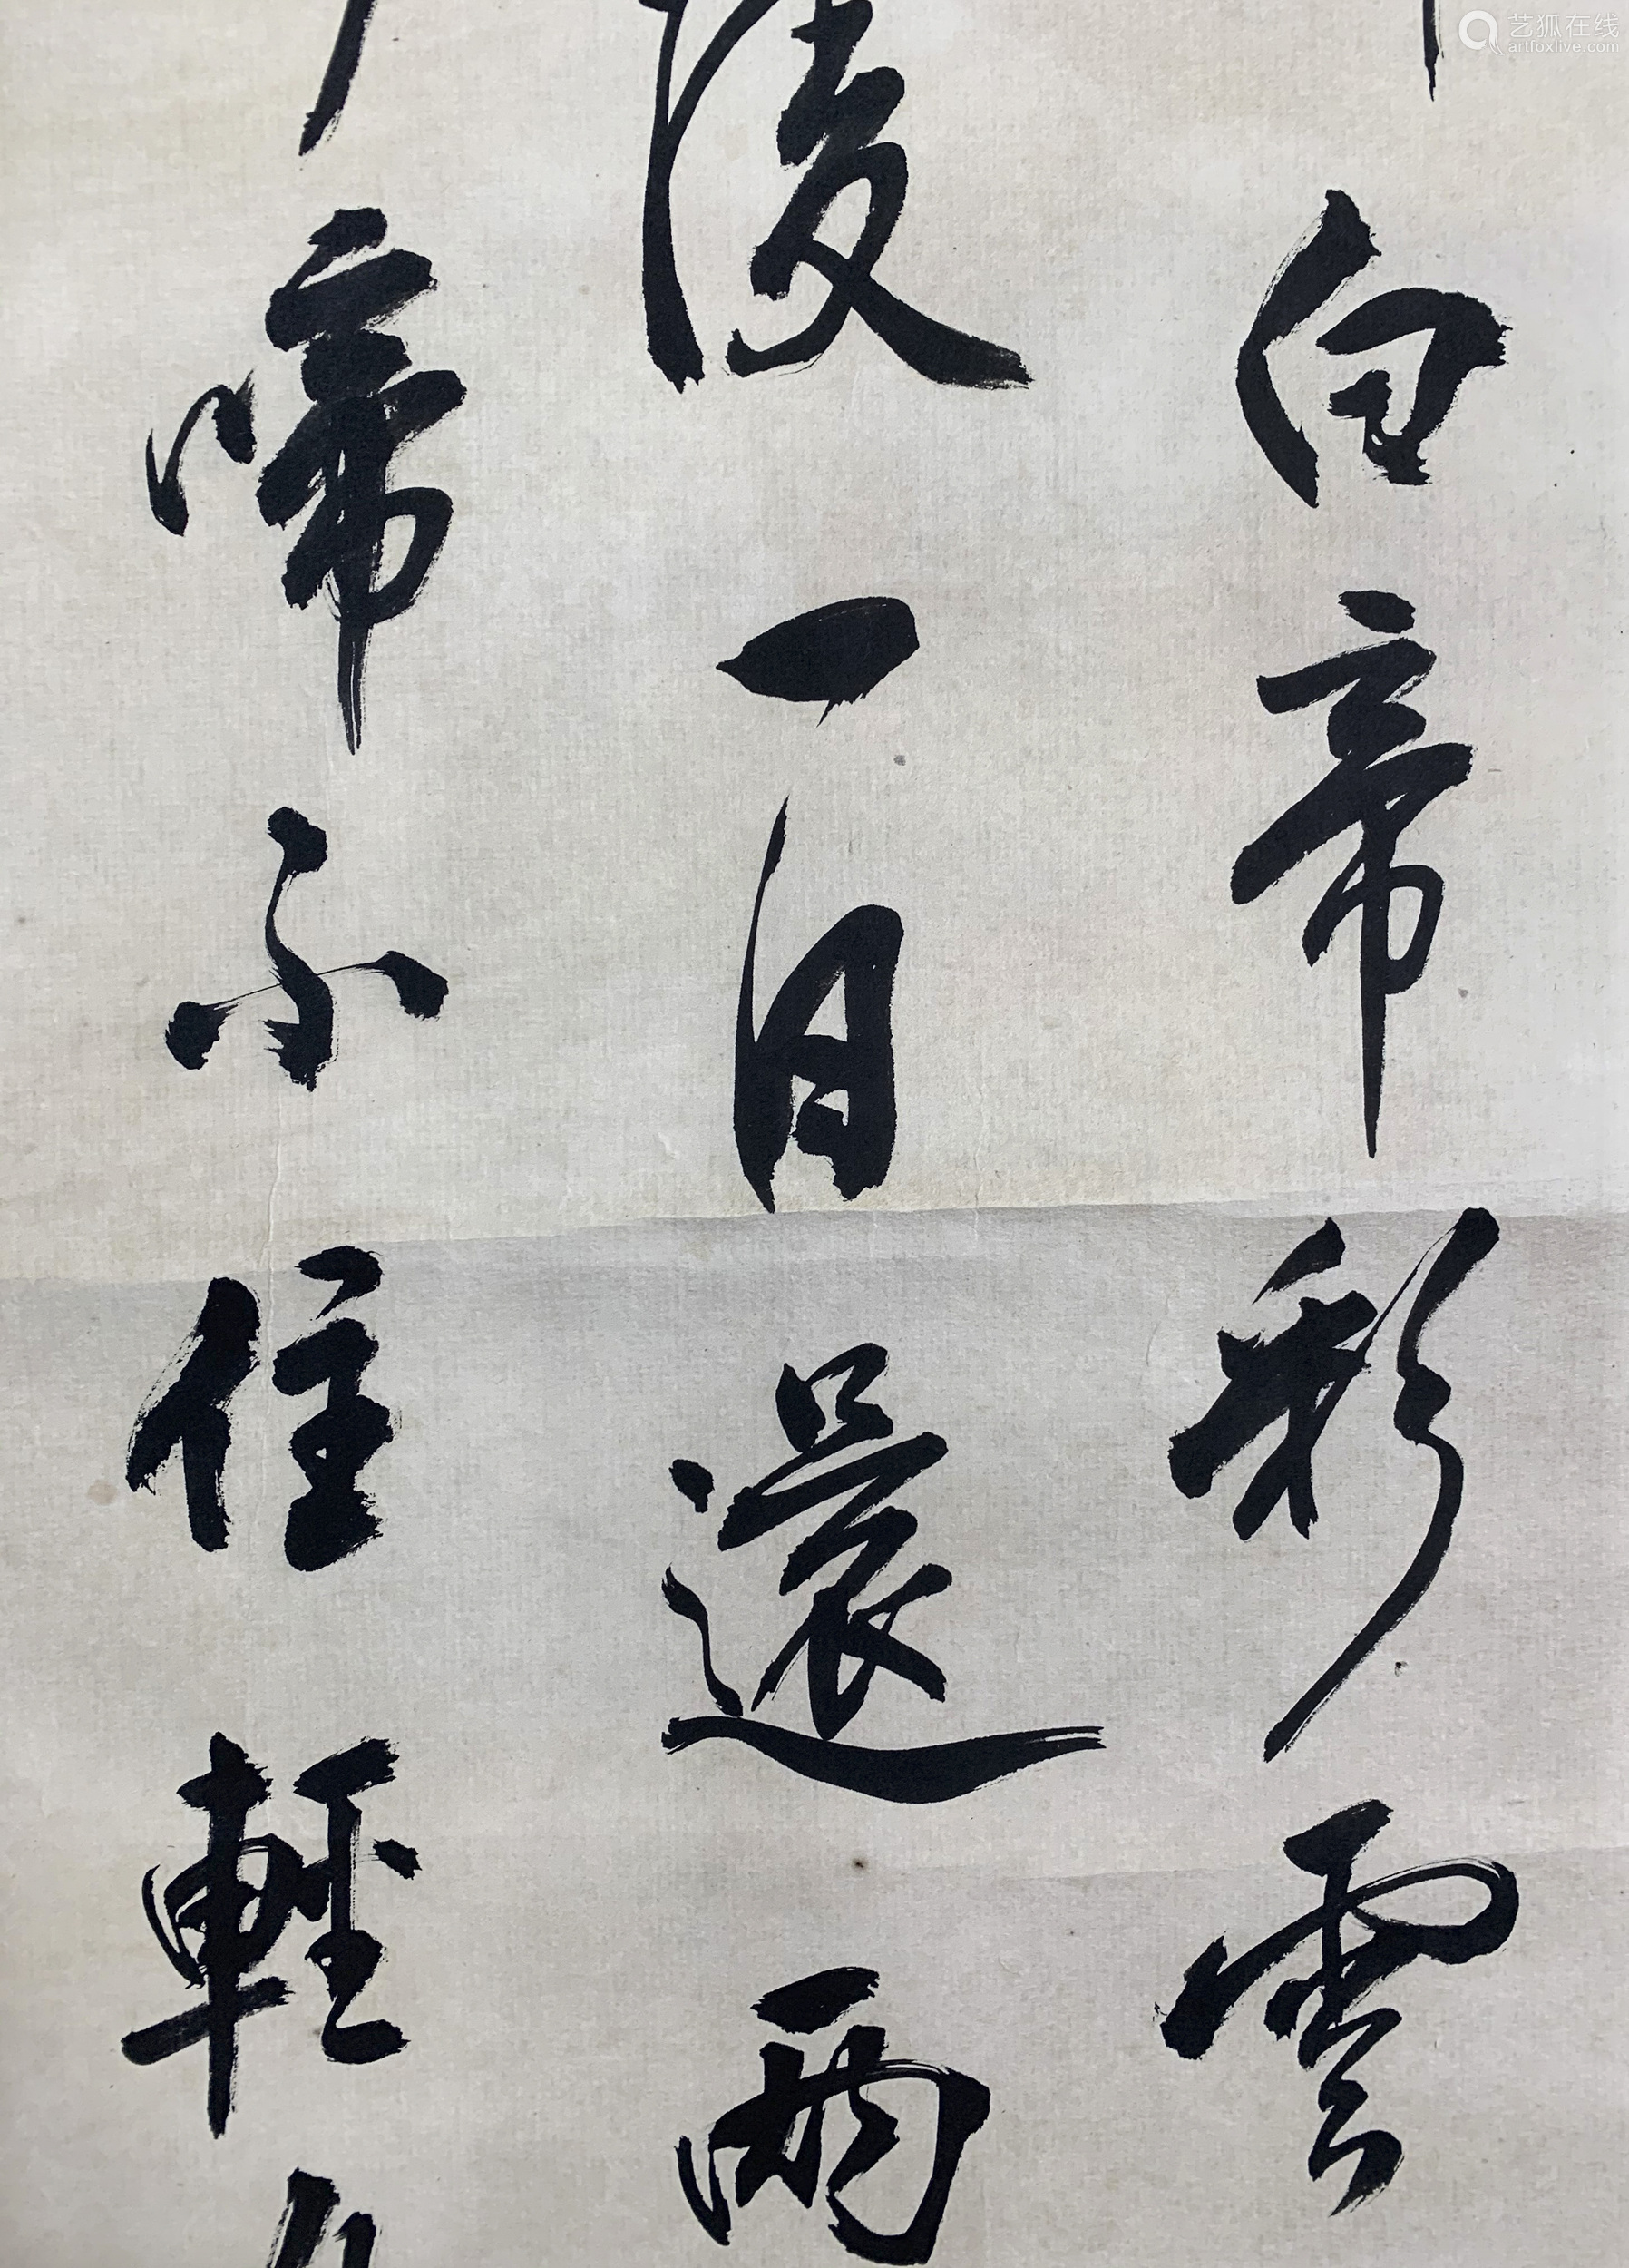 白帝彩雲
陵一日還兩
啼不住輕
艺狐在线
artfoxlive.com